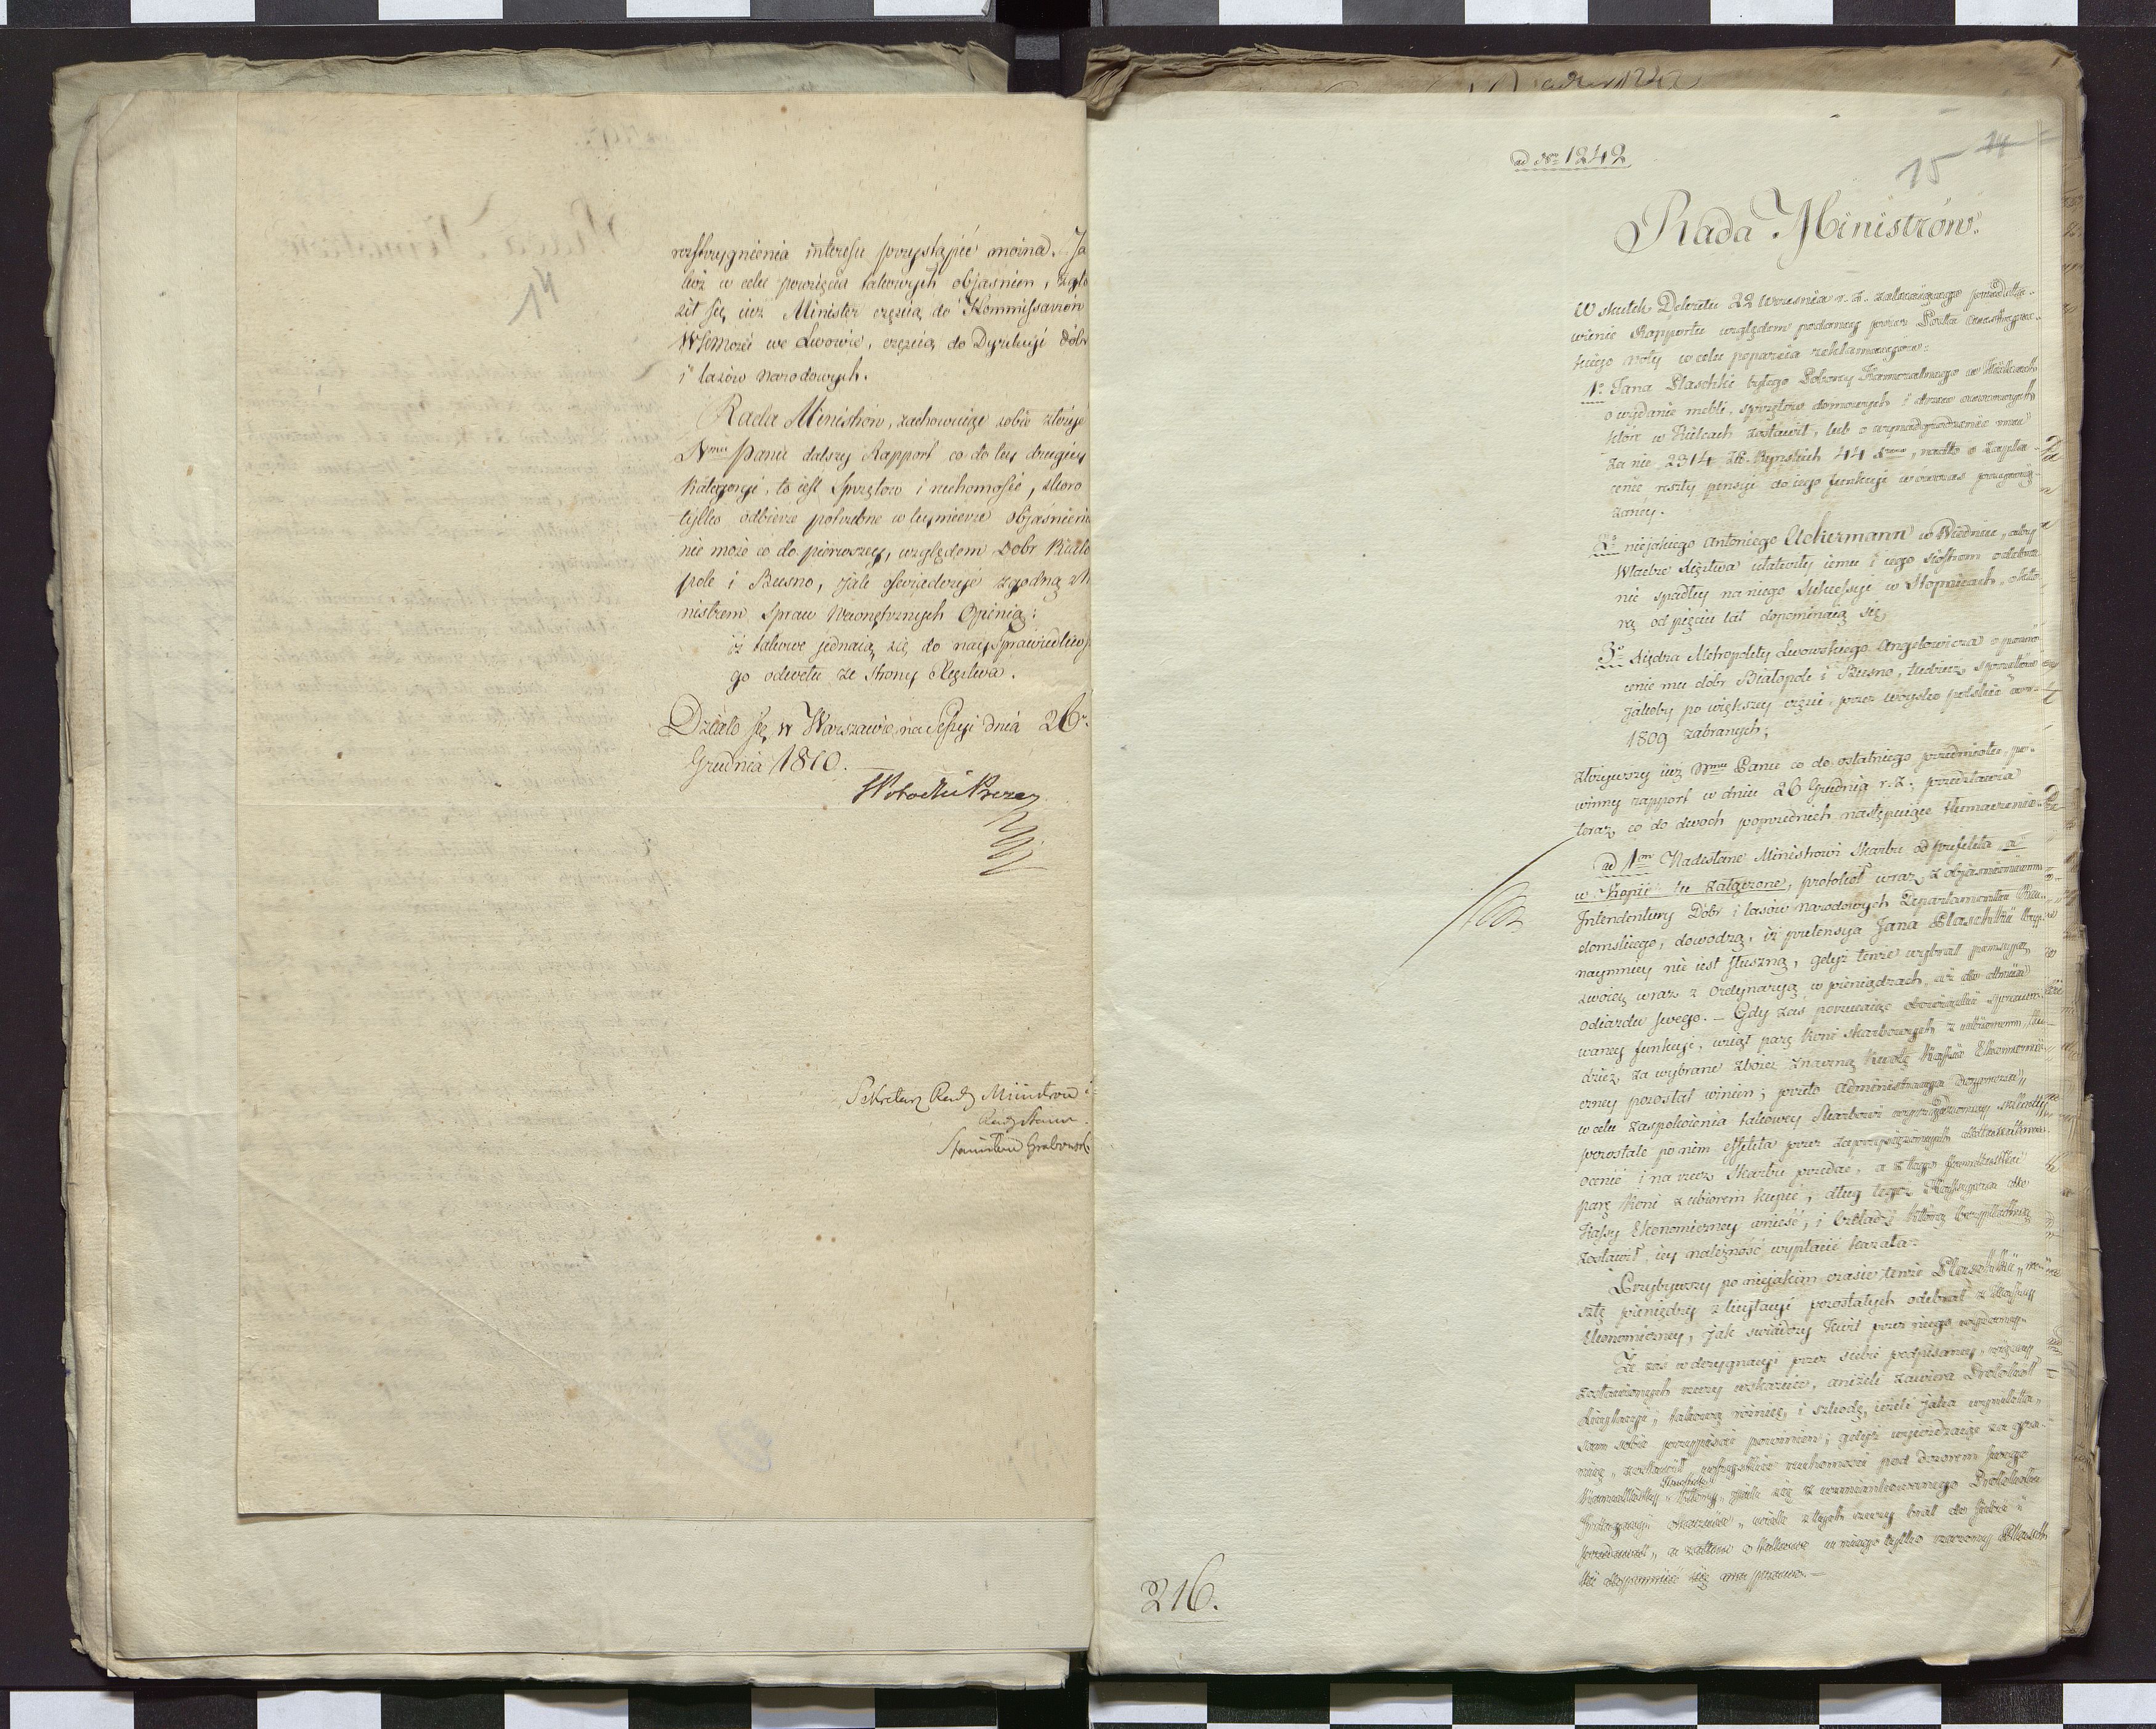 14
rozstrzygnienia interesu przystąpić można. Ja
koż w celu powzięcia takowych objaśnien, zgło
sił się iuż Minister częścią do Kommissarzów
W. we Lwowie, częścią do Dyrekcyi dóbr
i lasów narodowych.
Rada Ministrów, zachowuiąc sobie złożyć
Nmu Panu dalszy Rapport co do tey drugiey
kategoryi, to iest Sprzętow i ruchomości, skoro
tylko odbierze potrzebne w tey mierze objaśnienia
nie może co do pierwszey, względem Dobr Biało
pole i Busno, jak oświadczyć zgodną z Mi
nistrem Spraw Wewnętrznych Opinią:
iż takowe jednaią się do naysprawiedliwsze
go odwetu ze strony Xięstwa.
Działo się w Warszawie na Sessyi dnia 26o
Grudnia 1810.
Sekretarz Rady Ministrow i
Rady Stanu
Stanisław Grabowski
ad Nrm 1242
14
15
Rada Ministrów.
W skutek Dekretu 22 Wrzesnia r. z. zalecaiącego przedsta-
wienie Rapportu względem podaney przez Posła Austryac-
kiego noty w celu poparcia reklamacyów:
1o Jana Plaschki byłego Poborcy Kameralnego w Kielcach
o wydanie mebli, sprzętów domowych i
które w Kielcach zostawił, lub o wynadgrodzenie mu
za nie 2314 ZR. Ryńskich 44 , nadto o zapła-
cenie reszty pensyi do iego funkcyi wówczas przywią-
zaney.
2o niejakiego Antoniego Ackermann w Wiedniu, aby
Władze Xięstwa ułatwiły iemu i iego siostrom odebra-
nie spadłey na niego Sukcessyi w Stopnicach, októ-
rą od pięciu lat dopominaią się
3o Xiędza Metropolity Lwowskiego Angelowicza o powró-
cenie mu dóbr Białopole i Busno, tudzież sprzętów
jakoby po większey części przez woysko polskie w r.
1809 zabranych;
złożywszy iuż Nmu Panu co do ostatniego przedmiotu, po-
winny rapport w dniu 26 Grudnia r. z., przedstawia
teraz co do dwoch poprzednich następuiące tłumaczenie.
ad 1um Nadesłane Ministrowi Skarbu od prefekta, a
w Kopii tu załączone, protokół wraz z objaśnieniem
Intendentury Dóbr i lasów narodowych Departamentu Ra-
domskiego, dowodzą, iż pretensya Jana Plaschki
naymniey nie iest słuszną, gdyż tenże wybrał pensyą
swoię wraz z Ordynaryą w pieniądzach, aż do dnia
odiazdu swego. – Gdy zaś porzucaiąc obowiązki sprawo-
waney funkcyi, wziął parę koni skarbowych z ubiorem, tu-
dzież za wybrane zboże znaczną kwotę Kassie Ekonomi-
czney pozostał winien; przeto Administracya
w celu zaspokoienia takowey Skarbowi
pozostałe po nim effekta przez zaprzysiężonych
ocenić i na rzecz Skarbu przedać, a z tego
parę koni z ubiorem kupić, dług tegoż do
Kassy Ekonomiczney wnieść, i Czeladź którą bezpłatną
zostawił, iey należność wypłacić kazała.
Przybywszy po niejakim czasie tenże Plaschki, re-
sztę pieniędzy z licytacyi pozostałych odebrał z Kassy
Ekonomiczney, jak świadczy kwit przez niego wydany.
Że zaś w dezygnacyi przez siebie podpisaney, więcey
zostawionych rzeczy wskazuie, aniżeli zawiera Protokół
Licytacyi, takową różnicę, i szkodę, ieżeli jaka wynikła,
sam sobie przypisać powinien; gdyż wyieżdzaiąc za gra-
nicę, zostawił wszystkie ruchomości pod dozorem swego
, który, jak się z wzmiankowanego Protokołu
Licytacyi okazuie, wiele z tych rzeczy brał do siebie i
przedawał, a zatem o takowe u niego tylko rzeczony Plasch
ki dopominać się ma prawo.–
216.